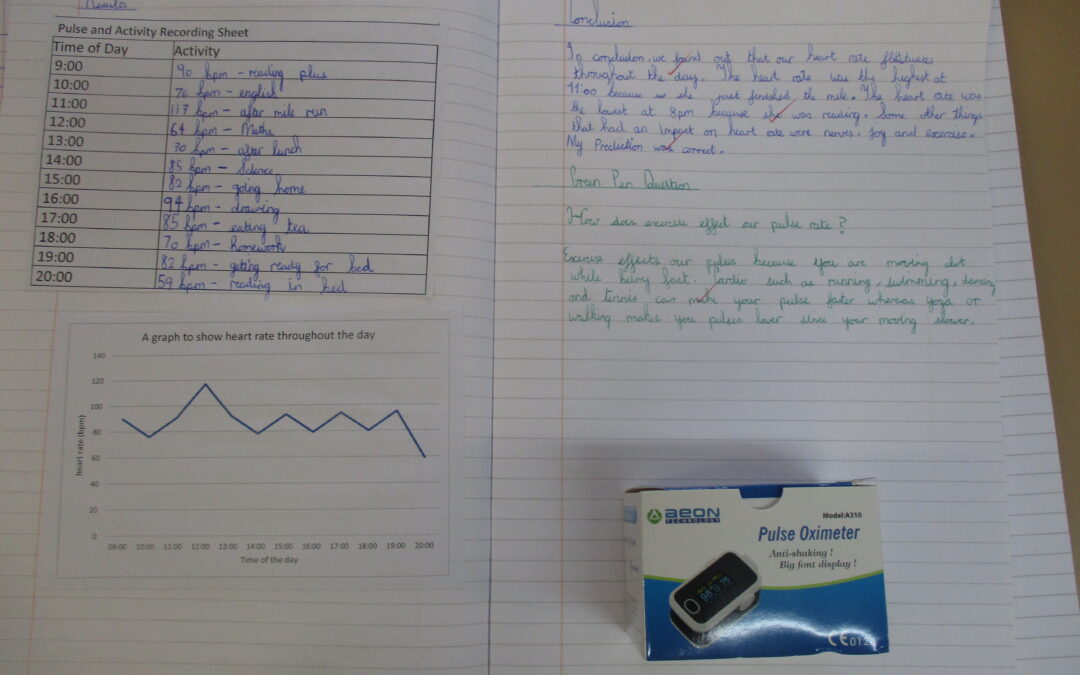 Results
Pulse and Activity Recording Sheet
Time of Day Activity
9:00 90 bpm - reading plus
10:00 76 bpm - english
11:00 117 bpm - after mile run
12:00 64 bpm - Maths
13:00 70 bpm - after lunch
14:00 85 bpm - Science
15:00 82 bpm - going home
16:00 94 bpm - drawing
17:00 85 bpm - eating tea
18:00 70 bpm - homework
19:00 82 bpm - getting ready for bed
20:00 59 bpm - reading in bed
A graph to show heart rate throughout the day
140
120
100
80
60
40
20
0
heart rate (bpm)
09:00 10:00 11:00 12:00 13:00 14:00 15:00 16:00 17:00 18:00 19:00 20:00
Time of the day
Conclusion
In conclusion, we found out that our heart rate
throughout the day. The heart rate was the highest at
11:00 because she just finished the mile. The heart rate was
the lowest at 8pm because she was reading. Some other things
that had an impact on heart rate were nerves, joy and exercise.
My Prediction was correct.
Green Pen Question
How does exercise effect our pulse rate?
Exercise effects our pulses because you are moving alot
while being fast. Cardio such as running, swimming, dancing
and tennis can make your pulse faster whereas yoga or
walking makes you pulses lower since your moving slower.
aeon
TECHNOLOGY
Model:A310
Pulse Oximeter
Anti-shaking !
Big font display !
CE 012